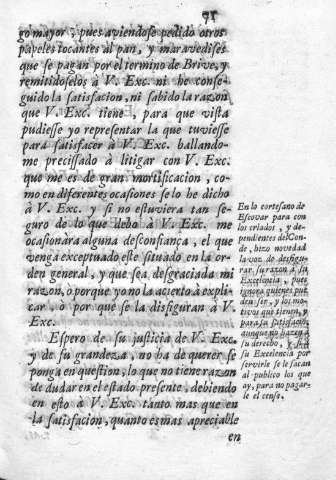 91
go mayor; pues aviendose pedido otros
papeles tocantes al pan, y maravedises
que se pagan por el termino de Brive, y
remitidoselos à V. Exc. ni he conse-
guido la satisfacion, ni sabido la razon
que V. Exc. tiene, para que vista
pudiesse yo representar la que tuviesse
para satisfacer à V. Exc. ballando-
me precissado à litigar con V. Exc.
que me es de gran mortificacion, co-
mo en diferentes ocasiones se lo he dicho
à V. Exc. y si no estuviera tan se-
guro de lo que debo à V. Exc. me
ocasionàra alguna desconfiança, el que
venga exceptuado este situado en la or-
den general, y que sea desgraciada mi
razon, o porque yo no la acierto à expli-
car, o por que se la disfiguran à V.
Exc.
Espero de su justicia de V. Exc.
y de su grandeza, no ha de querer se
ponga en question, lo que no tiene razon
de dudar en el estado presente, debiendo
en esto à V. Exc. tanto mas que en
la satisfacion, quanto es mas apreciable
en
En lo cortesano de
Escovar para con
los criados, y de-
pendientes del Con-
de, hizo novedad
la voz de desfigu-
rar su razon à su
Excelencia, pues
ignora quienes pue-
den ser, y los mo-
tivos que tienen, y
para su satisfacion
aunque no hazen
su derecho,
su Excelencia por
servirle se le sacan
al publico los que
ay, para no pagar-
le el censo.